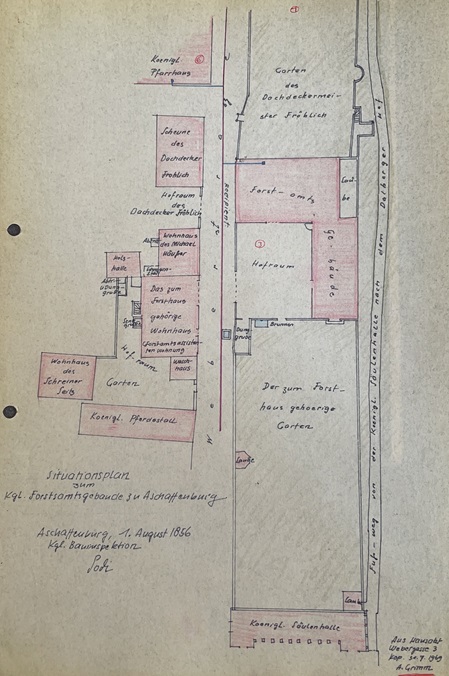 Koenigl.
Pfarrhaus
Garten
des
Dachdeckermei-
ster Fröhlich
Scheune
des
Dachdecker
Fröhlich
Hofraum
des
Dachdecker Fröhlich
Forst-amts
Ge-
bäude
Lau-
be
Wohnhaus
des Michael
Häußer
Holz-
halle
Hofraum
Das zum
Forsthaus
gehörige
Wohnhaus
Hofraum
Dung
grube
Brunnen
Wasch-
haus
Wohnhaus
des
Schreiner
Seitz
Garten
Koenigl. Pferdestall
Der zum Forst-
haus gehoerige
Garten
Laube
Fuß-weg von der Koenigl. Säulenhalle nach dem Dalberger Hof
Situationsplan
zum
Kgl. Forstamtsgebäude zu Aschaffenburg
Aschaffenburg, 1. August 1856
Kgl. Bauinspektion
Koenigl. Säulenhalle
Webergasse 3
Kop. 20.9.1969
A. Grimm